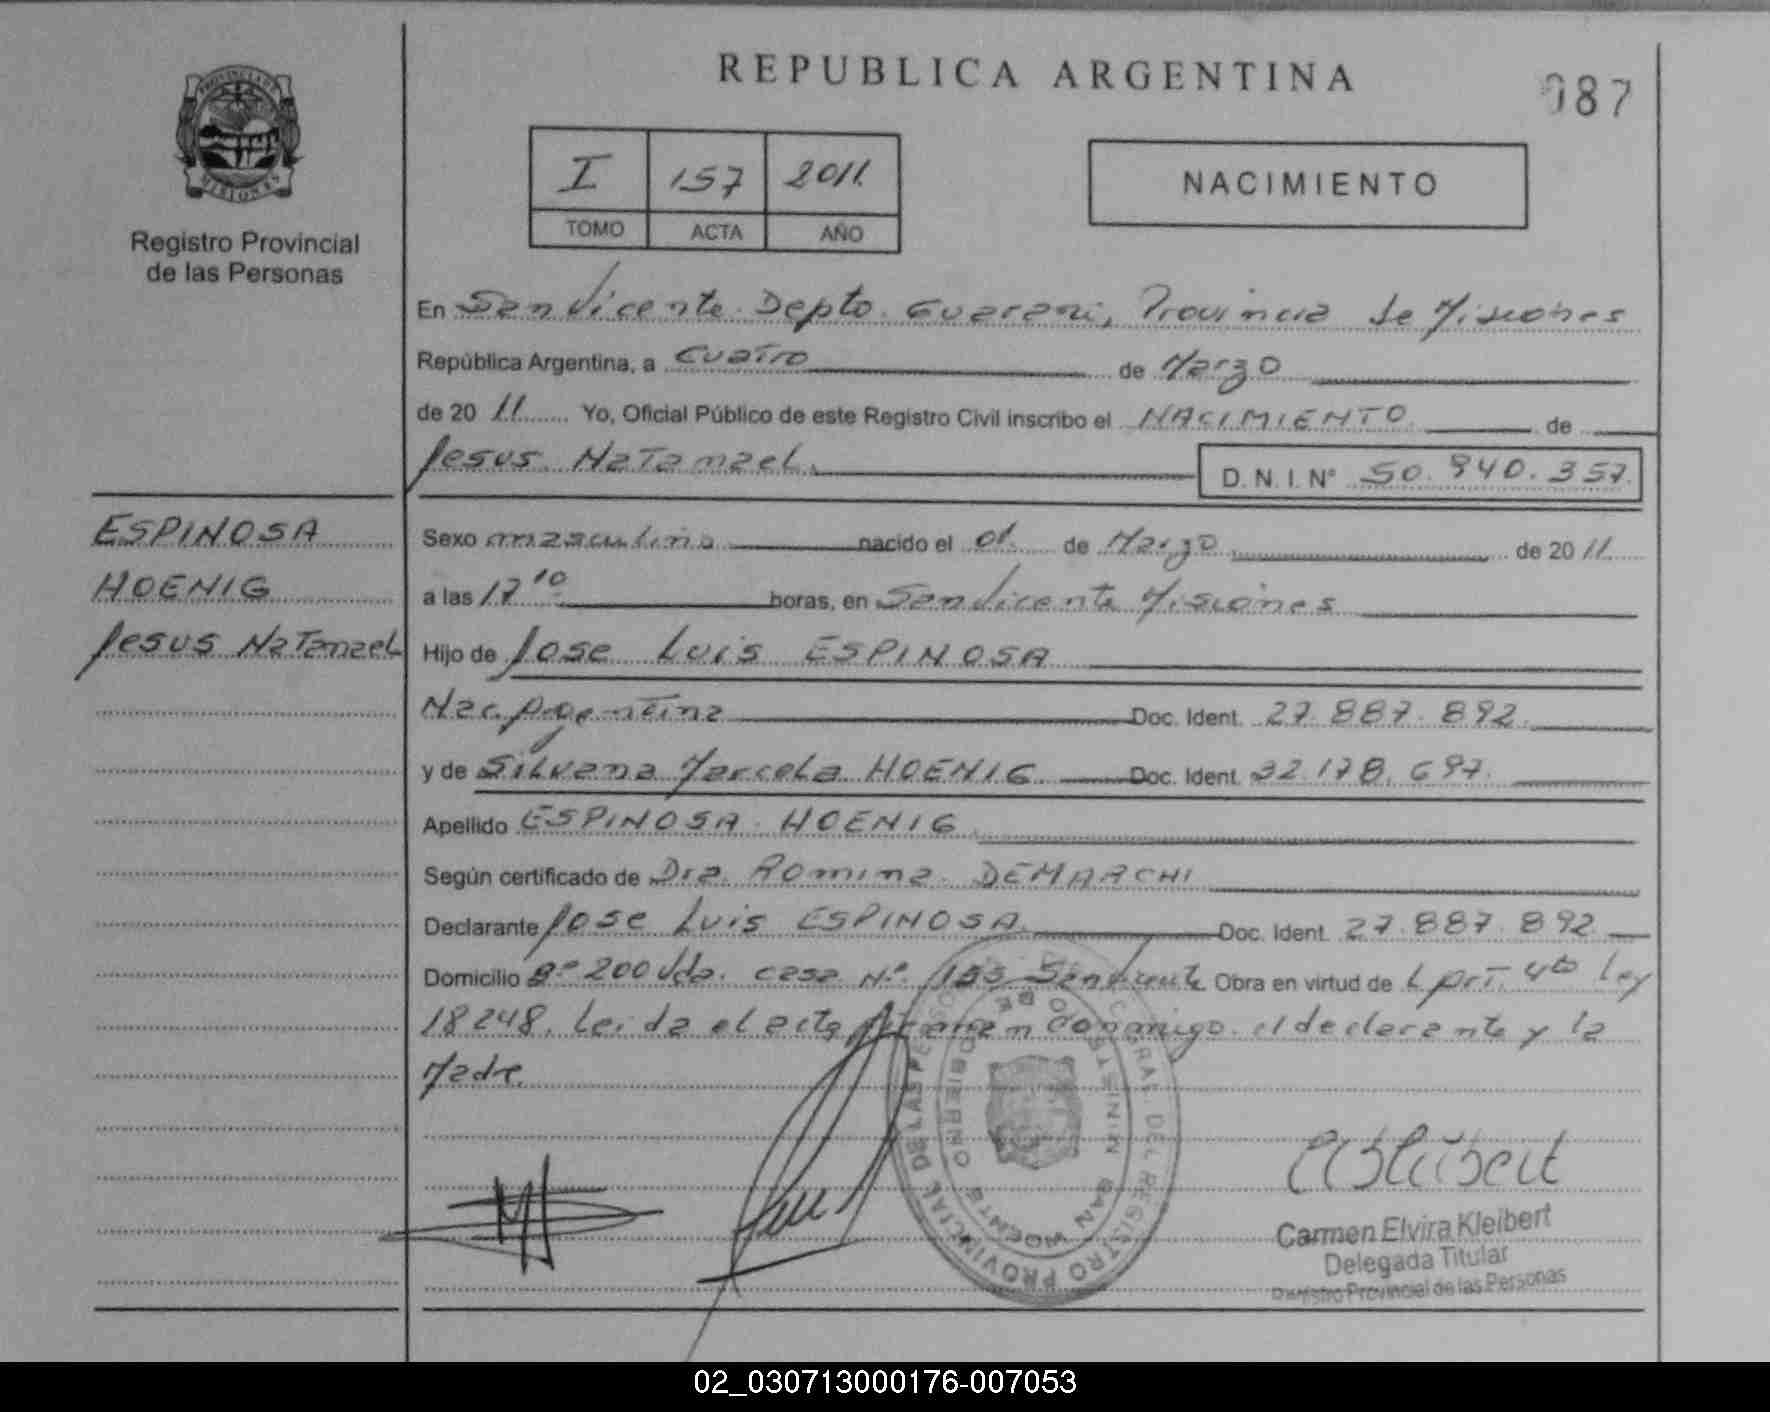 REPUBLICA ARGENTINA
087
PROVINCIA DE
MISIONES
Registro Provincial
de las Personas
I 157 2011
TOMO ACTA AÑO
NACIMIENTO
En San Vicente Depto. Guarani, Provincia de Misiones
República Argentina, a cuatro de Marzo
de 20 11 Yo, Oficial Público de este Registro Civil inscribo el NACIMIENTO de
Jesus Natanael. D.N.I.Nº 50.940.357.
ESPINOSA
HOENIG
Jesus Natanael
Sexo masculino nacido el 01. de Marzo de 20 11
a las 17 10 horas, en San Vicente Misiones
Hijo de Jose Luis ESPINOSA
Nac. Argentina Doc. Ident. 27.887.892.
y de Silvana Marcela HOENIG Doc. Ident. 32.178.697.
Apellido ESPINOSA HOENIG
Según certificado de Dra. Romina DEMARCHI
Declarante Jose Luis ESPINOSA. Doc. Ident. 27.887.892
Domicilio Bº 200 Vda. casa Nº 153 San Vicente Obra en virtud de L Art. 4to Ley
18248. Leida el acta firman conmigo el declarante y la
Madre.
REGISTRO PROVINCIAL DE LAS
MINISTERIO DE GOBIERNO
SAN VICENTE
Carmen Elvira Kleibert
Delegada Titular
Registro Provincial de las Personas
02_030713000176-007053